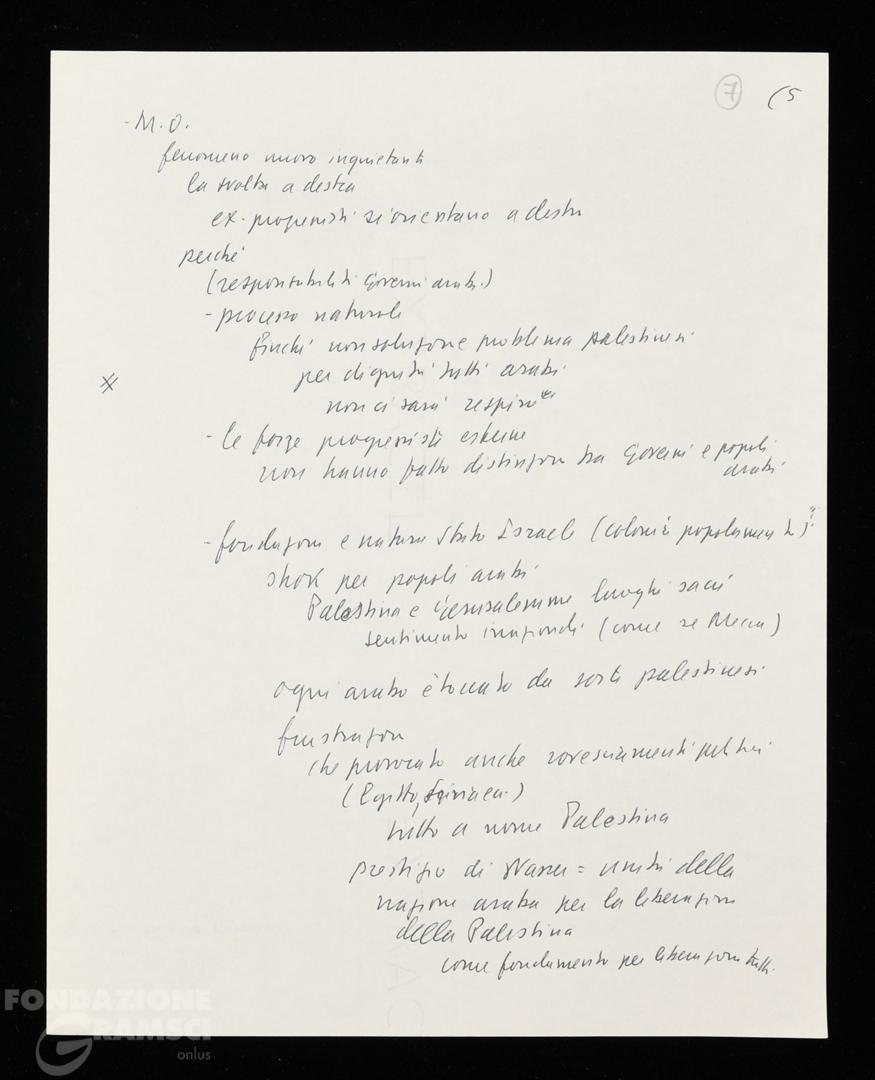 7 (5
- M.O.
fenomeno nuovo inquietanti
la svolta a destra
ex-progressisti si orientano a destra
perché
(responsabilità Governi arabi)
- processo naturale
finché non soluzione problema palestinesi
per dignità tutti arabi
non ci sarà respiro
- le forze progressiste esterne
non hanno fatto distinzione tra Governi e popoli
arabi
- fondazione e natura Stato Israele (colonia popolamento)
shok per popoli arabi
Palestina e Gerusalemme luoghi sacri
sentimento irrazionale (come se Mecca)
ogni arabo è toccato da sorte palestinesi
frustrazione
che provocato anche rovesciamenti politici
(Egitto, Siria ecc.)
tutto a nome Palestina
prestigio di Nasser = unità della
nazione araba per la liberazione
della Palestina
come fondamento per liberazione tutti.
FONDAZIONE
GRAMSCI
onlus